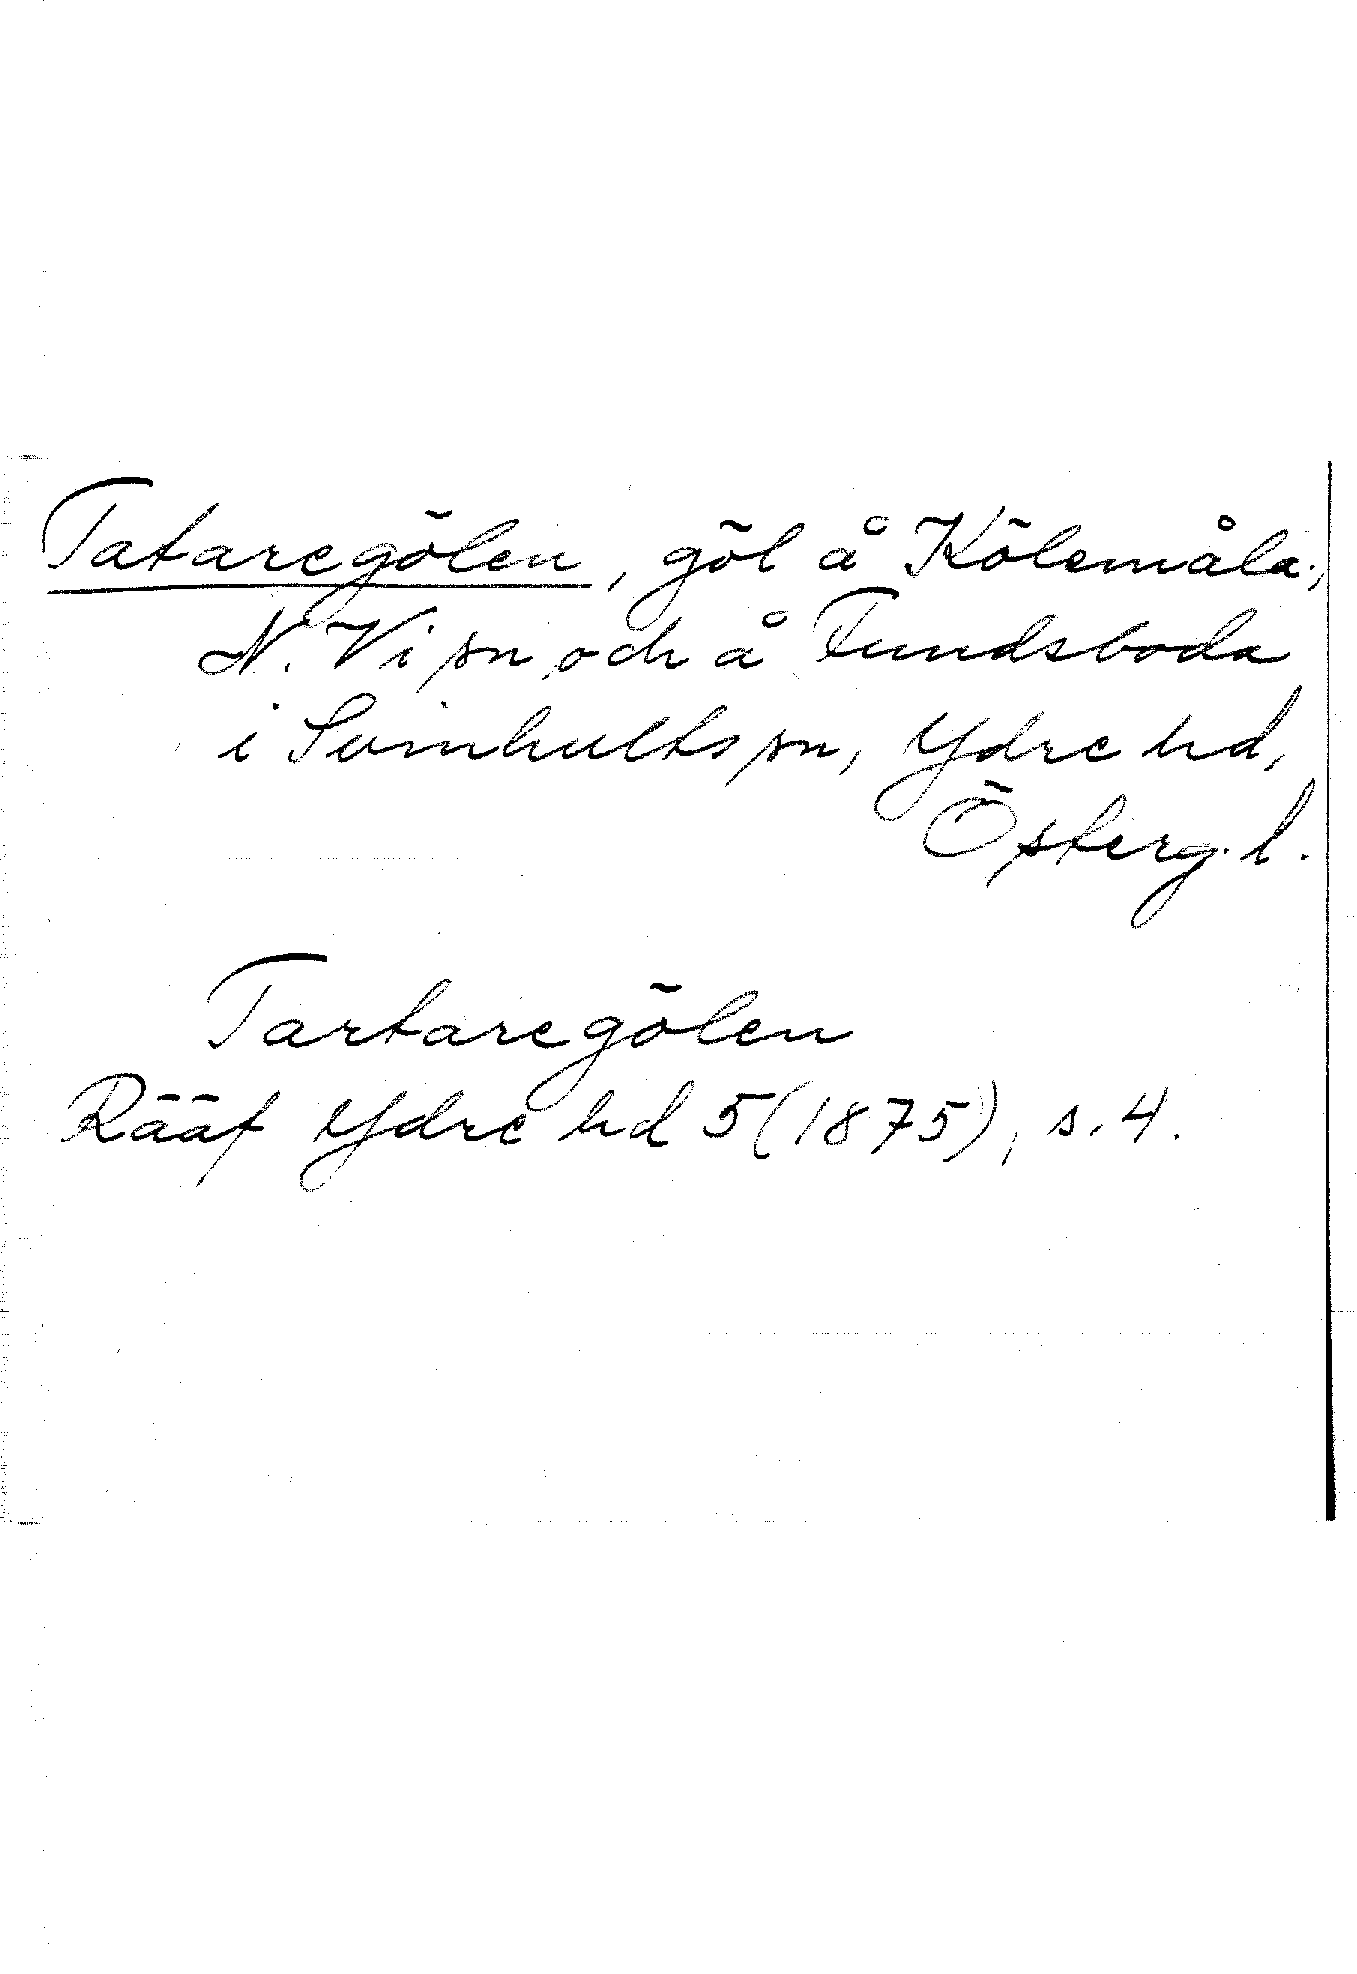 Tataregölen, göl å Kölemåla,
N. Vi sn och å Fundsboda
i Svinhults sn, Ydre hd,
Österg. l.
Tartaregölen
Rääf Ydre hd 5 (1875), s. 4.